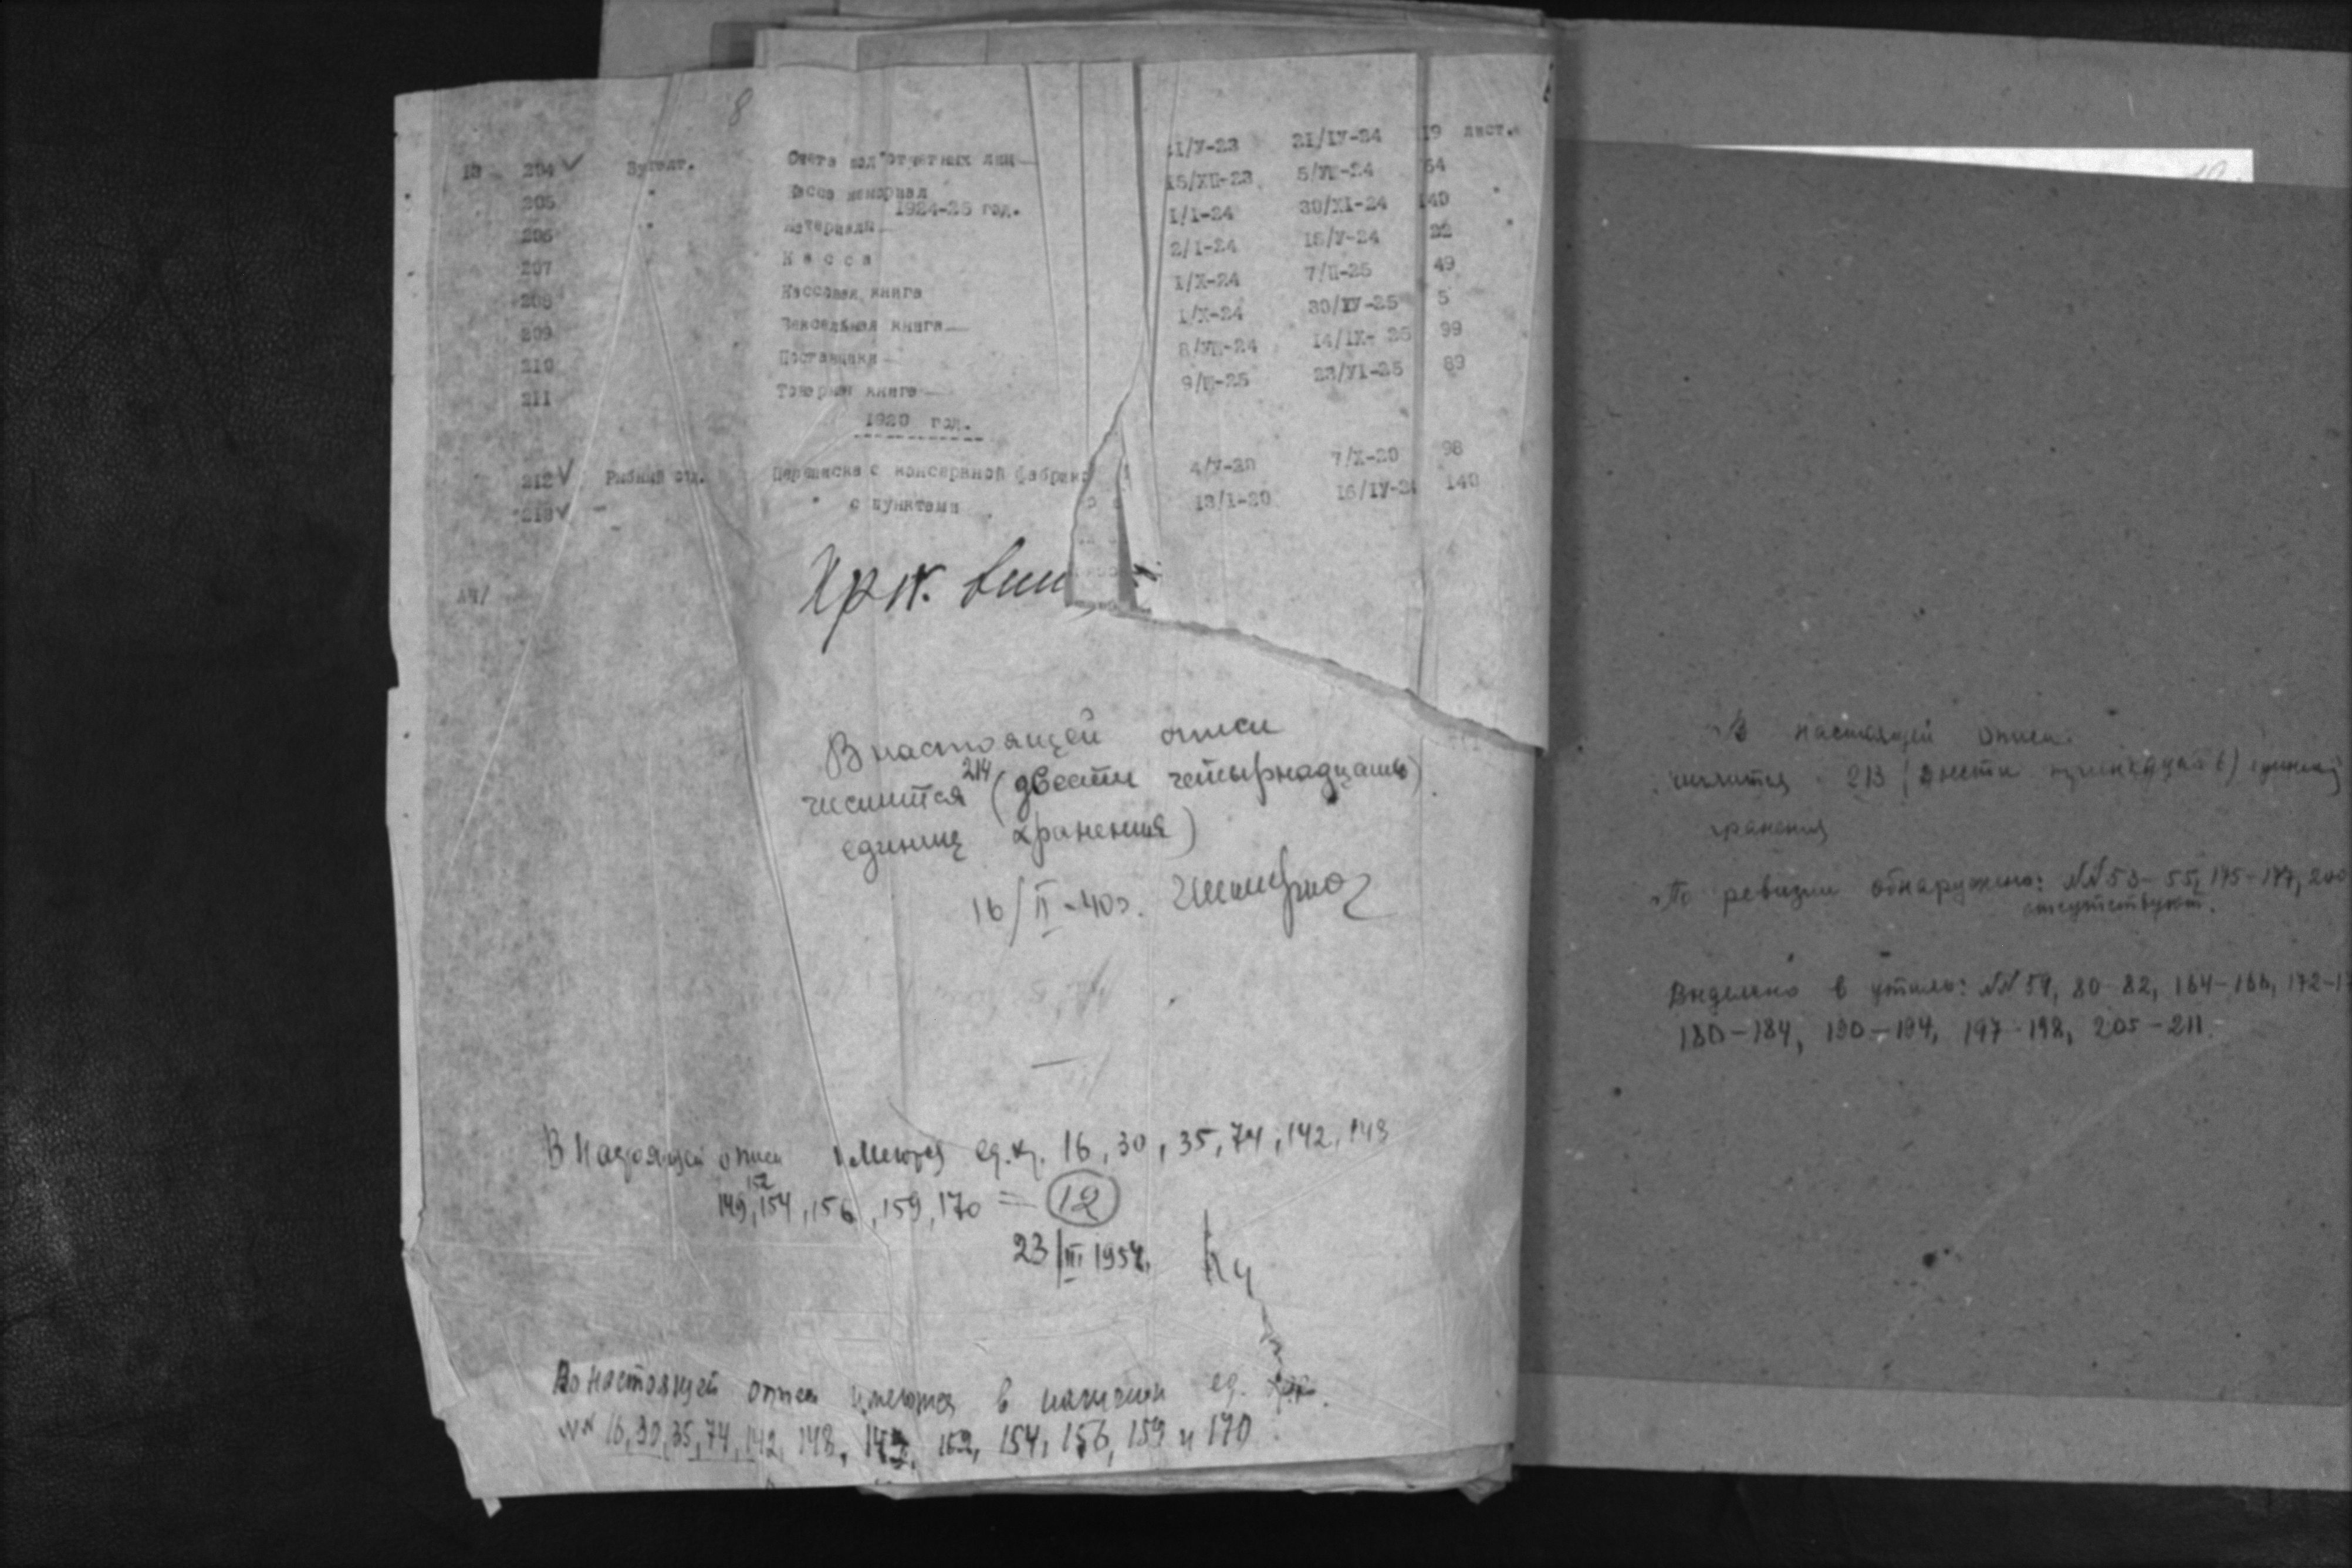 8
13 204 Бухгалт. Счета под"отчетных лиц 21/IУ-24 лист.
205 " Касса мемориал 15/ХП-23 5/УП-24 64
1924-25 год.
206 " Материалы 1/I-24 30/ХI-24 140 "
207 Касса 2/I-24 15/У-24 22 "
208 Кассовая книга 1/Х-24 7/П-25 49
209 Вексельная книга 1/Х-24 30/ІУ-25 5
210 Поставщики 8/УП-24 14/IХ- 25 99
211 Товарная книга 9/П-25 23/УI-25 89
1920 год.
212 Рыбный отд. Переписка с консервной фабрик 4/У-20 7/Х-20 98
213 " " с пунктами 13/I-20 16/IУ-2 140
АЧ/
В настоящей описи
числится 214 (двести четырнадцать)
единиц хранения)
16/II-40г.
В настоящей описи имеются ед.хр. 16, 30, 35, 74, 142, 148
149, 152, 154, 156, 159, 170 = 12
23/III 1954.
Во настоящей описи имеются в наличии ед. хр.
NN 16, 30, 35, 74, 142, 148, 149, 152, 154, 156, 159 и 170
В настоящей описи
числится 213 (двести тринадцать) единиц
хранения
По ревизии обнаружено: NN 53-55, 175-177, 200
отсутствуют.
Выделено в утиль: NN 59, 80-82, 164-166, 172-17
180-184, 190-194, 197-198, 205-211.